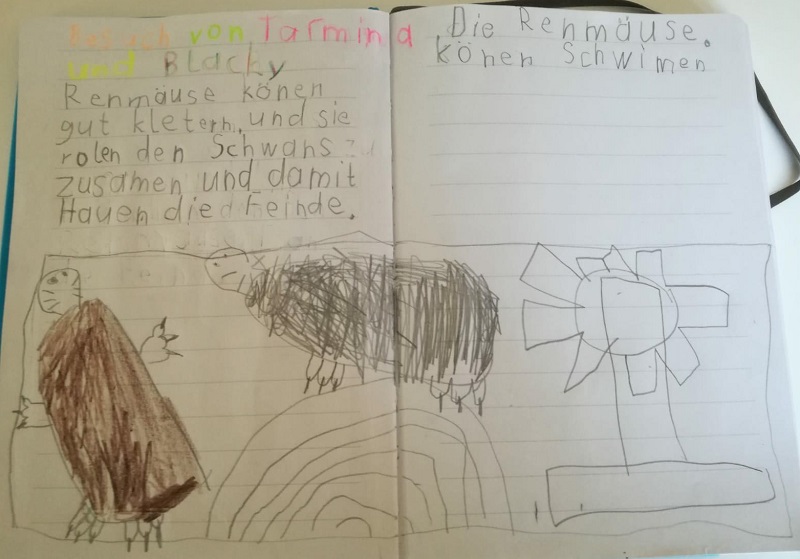 Besuch von Tarmina
und Blacky
Renmäuse könen
gut kletern, und sie
rolen den Schwans
zusamen und damit
Hauen die Feinde.
Die Renmäuse.
könen Schwimen